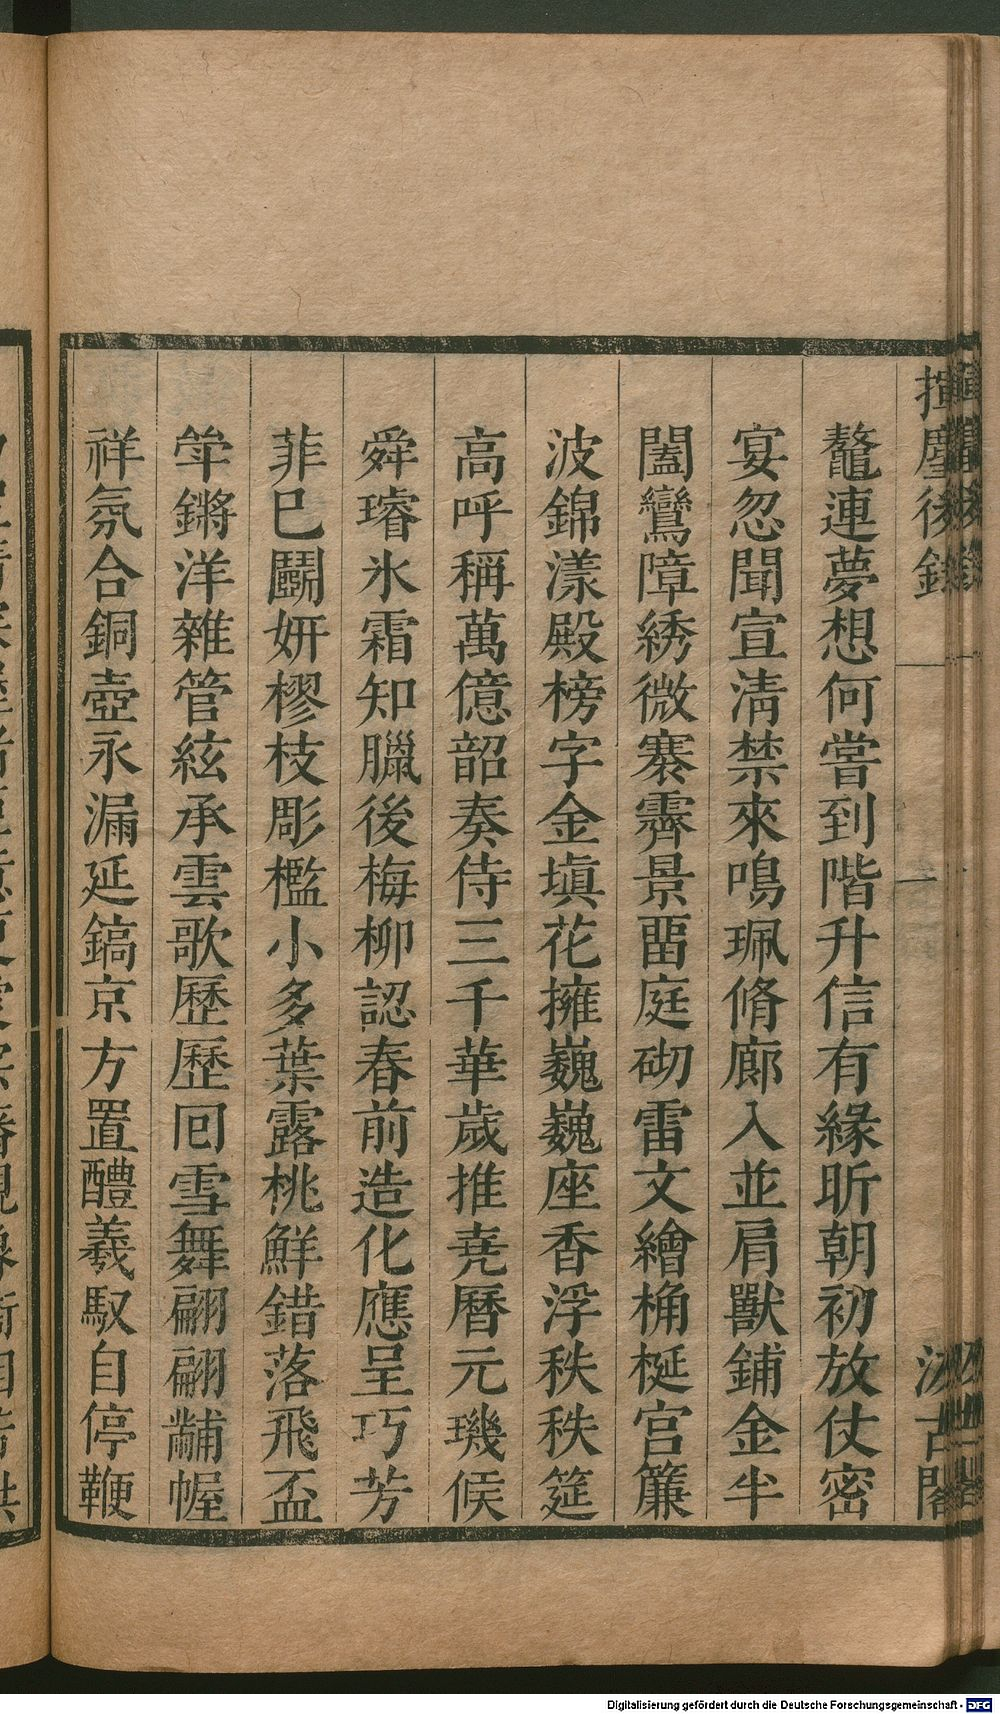 揮麈後錄
汲古閣
鼇連夢想何嘗到階升信有緣昕朝初放仗密
宴忽聞宣淸禁來鳴珮脩廊入並肩獸鋪金半
闔鸞障綉微褰霽景畱庭砌雷文繪桷梴宮簾
波錦漾殿榜字金塡花擁巍巍座香浮秩秩筵
高呼稱萬億韶奏侍三千華歲推堯曆元璣候
舜璿氷霜知臘後梅柳認春前造化應呈巧芳
菲巳鬭妍樛枝彫檻小多葉露桃鮮錯落飛盃
斝鏘洋雜管絃承雲歌歷歷回雪舞翩翩黼幄
祥氛合銅壺永漏延鎬京方置醴羲馭自停鞭
Digitalisierung gefördert durch die Deutsche Forschungsgemeinschaft - DFG